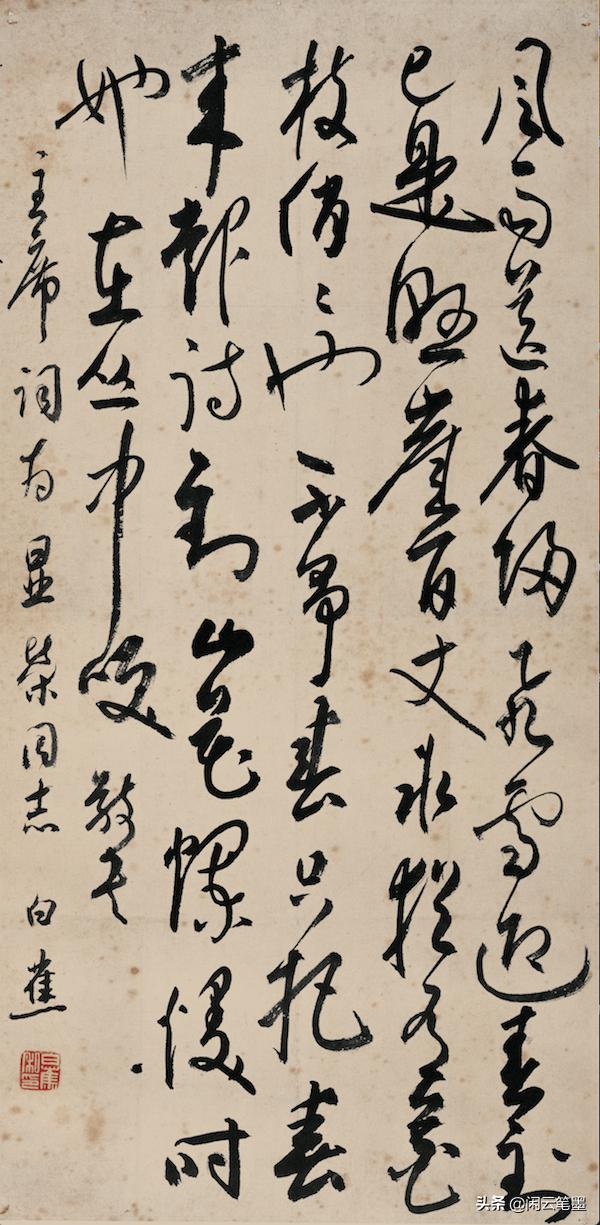 风雨送春归飞雪迎春到
已是悬崖百丈冰犹有花
枝俏〻也不争春只把春
来报待到山花烂漫时
她在丛中笑 敬录
主席词为显荣同志 白蕉
头条 @闲云笔墨